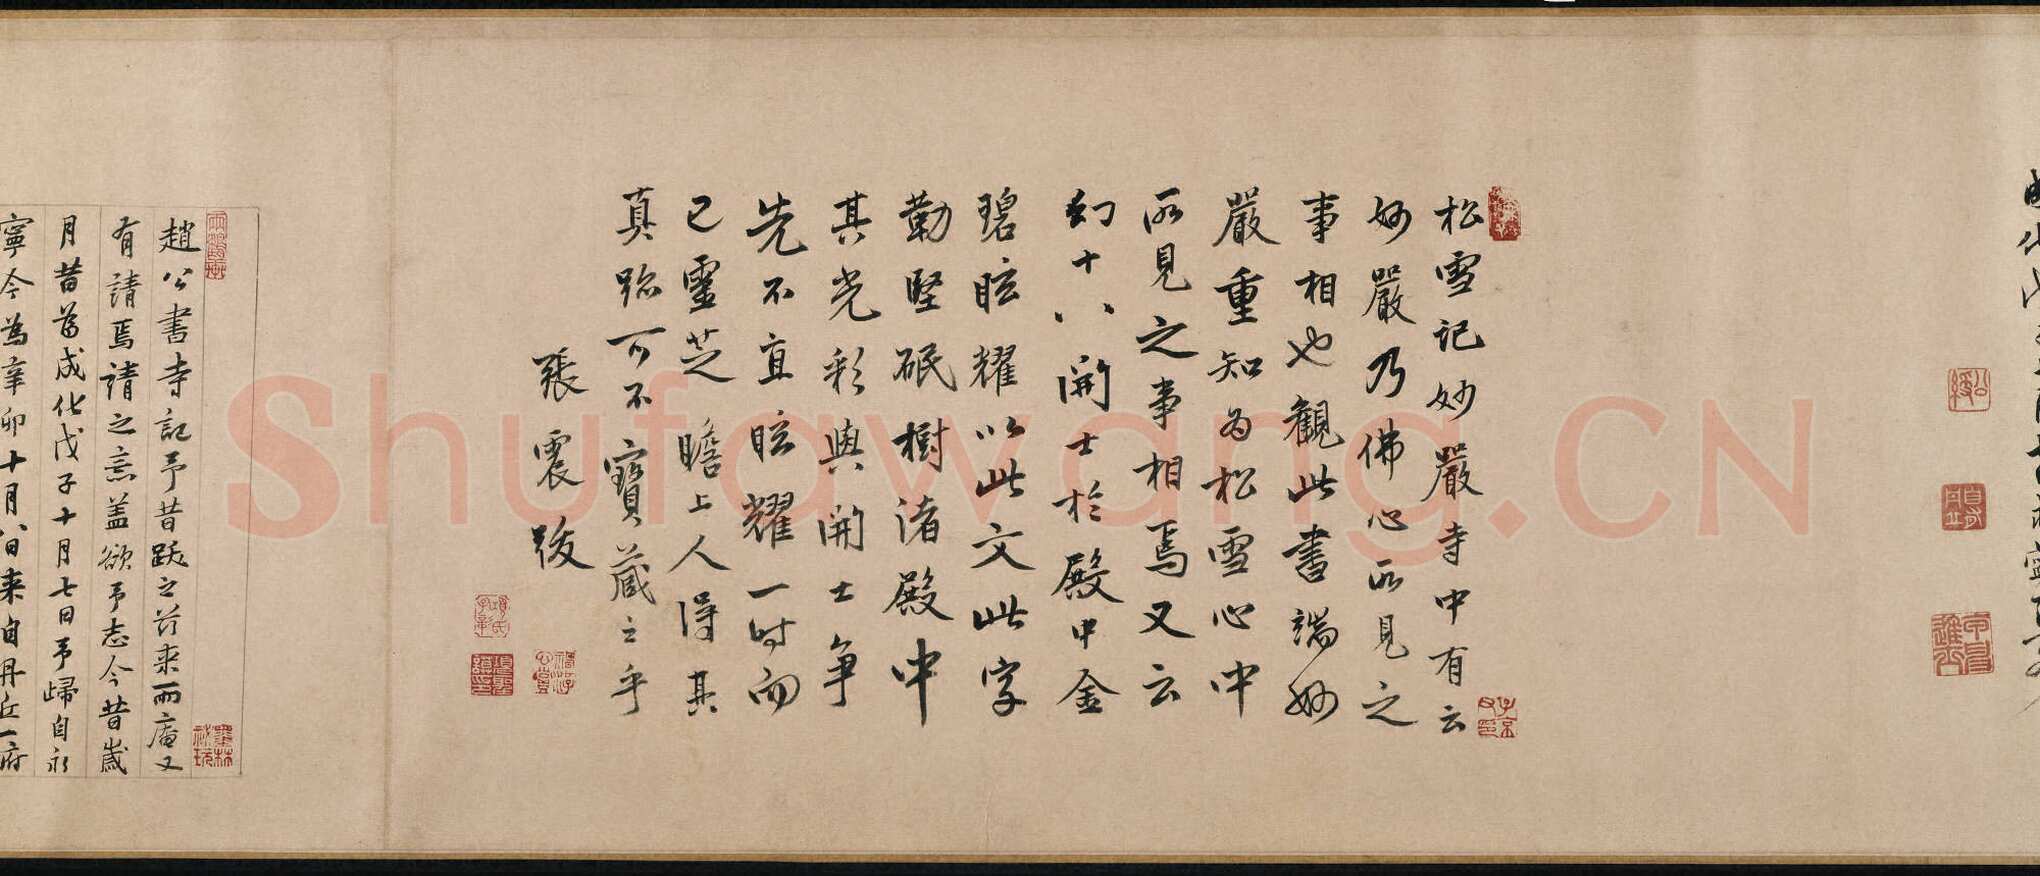 松雪记妙嚴寺中有云
妙嚴乃佛心所見之
事相也觀此書端妙
嚴重知為松雪心中
所見之事相焉又云
幻十八開士於殿中金
碧眩耀以此文此字
勒堅珉樹諸殿中
其光彩與開士爭
先不直眩耀一時而
已靈芝瞻上人得其
真跡可不寶藏之乎
張震跋
趙公書寺記予昔跋之茲来雨庵又
有請焉請之意盖欲予志今昔歲
月昔為成化戊子十月七日予歸自永
寧今為辛卯十月八日来自丹丘一府
Shufawang.CN